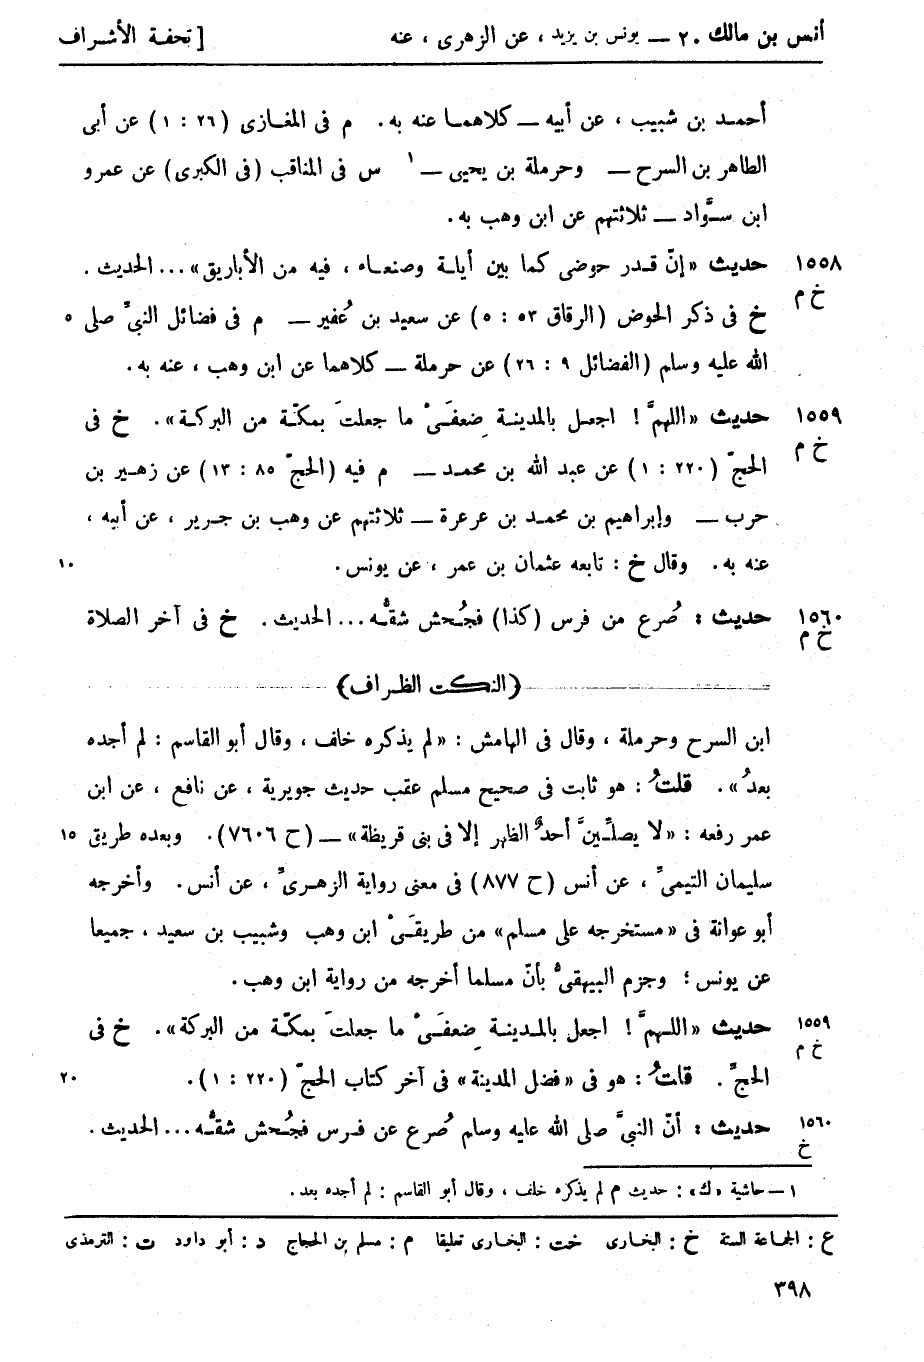 أنس بن مالك ٢٠ — يونس بن يزيد ، عن الزهرى ، عنه [ تحفة الأشراف
أحمد بن شبيب ، عن أبيه — كلاهما عنه به. م فى المغازى (٢٦ : ١) عن أبى
الطاهر بن السرح — وحرملة بن يحيى —١ س فى المناقب (فى الكبرى) عن عمرو
ابن سوَّاد — ثلاثتهم عن ابن وهب به.
١٥٥٨ حديث «إنّ قدر حوضى كما بين أيلة وصنعاء ، فيه من الأباريق»... الحديث.
خ م
خ فى ذكر الحوض (الرقاق ٥٣ : ٥) عن سعيد بن عُفير — م فى فضائل النبىّ صلى ٥
الله عليه وسلم (الفضائل ٩ : ٢٦) عن حرملة — كلاهما عن ابن وهب ، عنه به.
١٥٥٩ حديث «اللهمَّ! اجعل بالمدينة ضِعفَىْ ما جعلتَ بمكّة من البركة». خ فى
خ م
الحجّ (٢٢٠ : ١) عن عبد الله بن محمد — م فيه (الحجّ ٨٥ : ١٣) عن زهير بن
حرب — وإبراهيم بن محمد بن عرعرة — ثلاثتهم عن وهب بن جرير ، عن أبيه ،
عنه به. وقال خ : تابعه عثمان بن عمر ، عن يونس. ١٠
١٥٦٠ حديث : صُرع من فرس (كذا) فجُحش شقُّه... الحديث. خ فى آخر الصلاة
خ م
(النكت الظراف)
ابن السرح وحرملة ، وقال فى الهامش : «لم يذكره خلف ، وقال أبو القاسم : لم أجده
بعدُ». قلتُ : هو ثابت فى صحيح مسلم عقب حديث جويرية ، عن نافع ، عن ابن
عمر رفعه : «لا يصلِّينَّ أحدٌ الظهر إلا فى بنى قريظة» — (ح ٧٦٠٦). وبعده طريق ١٥
سليمان التيمىّ ، عن أنس (ح ٨٧٧) فى معنى رواية الزهرىّ ، عن أنس. وأخرجه
أبو عوانة فى «مستخرجه على مسلم» من طريقَىْ ابن وهب وشبيب بن سعيد ، جميعا
عن يونس ؛ وجزم البيهقىُّ بأنّ مسلما أخرجه من رواية ابن وهب.
١٥٥٩ حديث «اللهمَّ! اجعل بالمدينة ضِعفَىْ ما جعلتَ بمكّة من البركة». خ فى
خ م
الحجّ. قلتُ : هو فى «فضل المدينة» فى آخر كتاب الحجّ (٢٢٠ : ١). ٢٠
١٥٦٠ حديث : أنّ النبىَّ صلى الله عليه وسلم صُرع عن فرس فجُحش شقُّه... الحديث.
خ
١ — حاشية «ك» : حديث م لم يذكره خلف ، وقال أبو القاسم : لم أجده بعد.
ع : الجماعة الستة خ : البخارى خت : البخارى تعليقا م : مسلم بن الحجاج د : أبو داود ت : الترمذى
٣٩٨